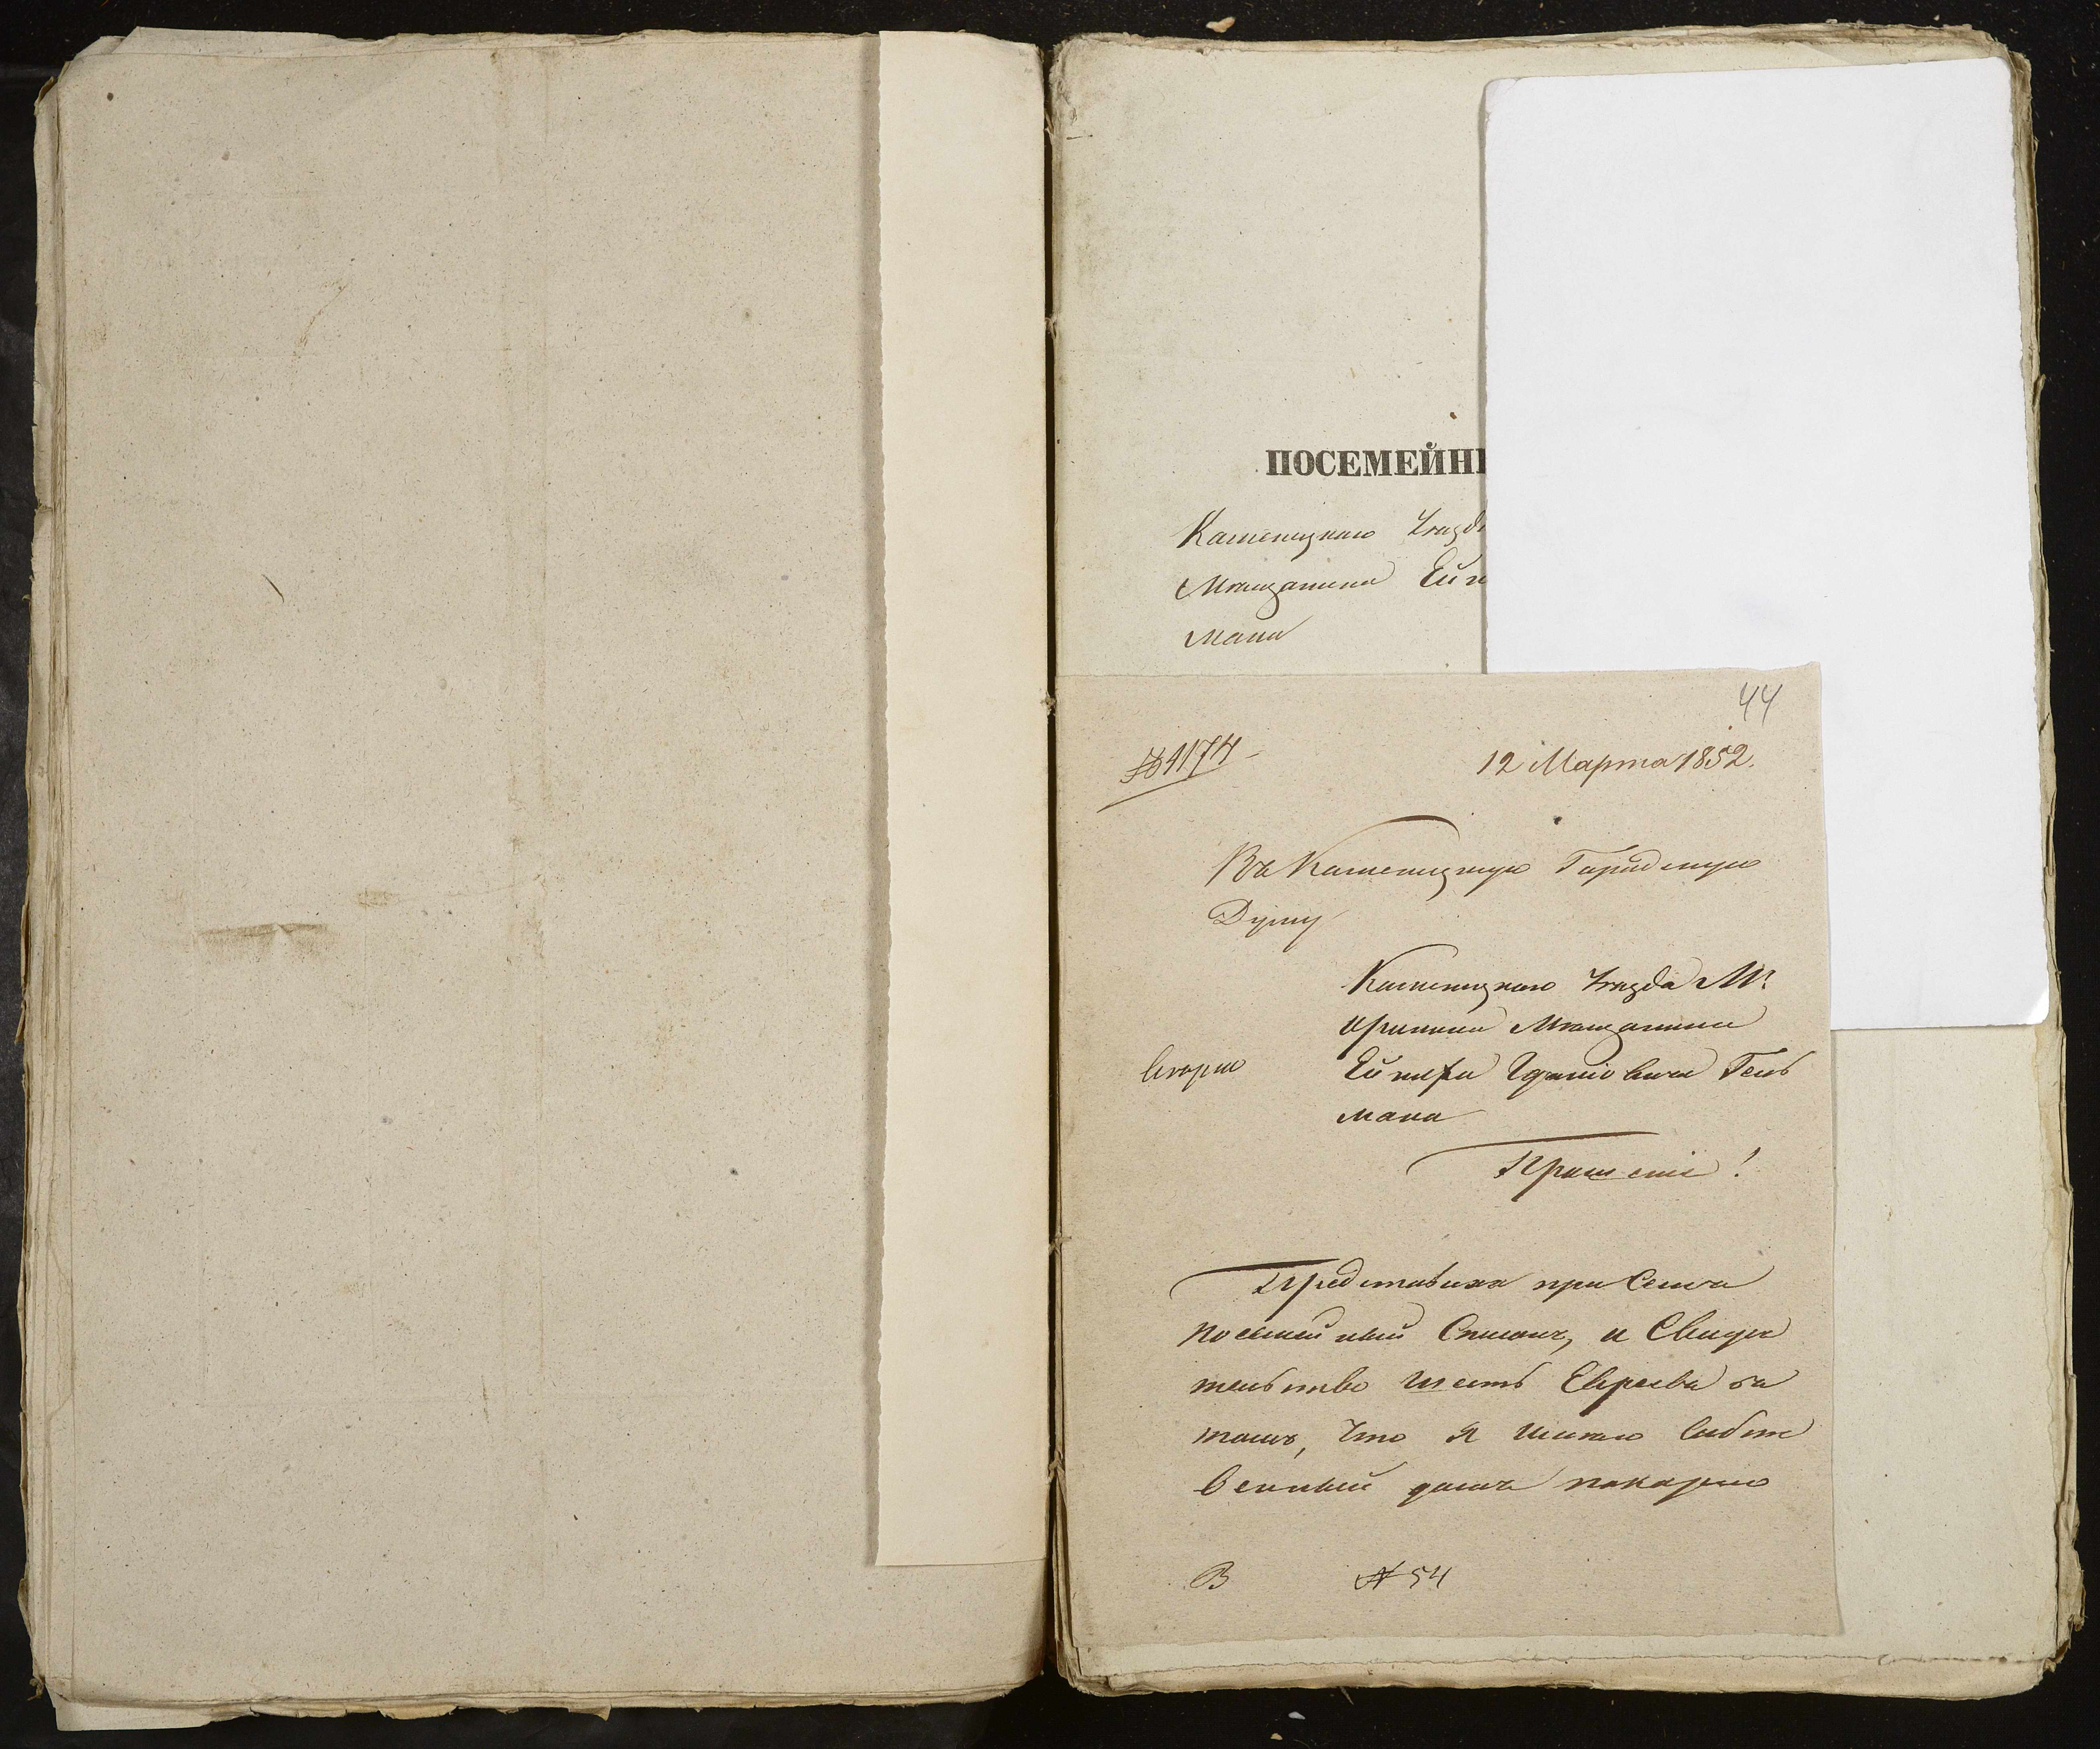 ПОСЕМЕЙН
Каменецкаго Уѣзд
Мѣщанина Ей
мана
44
№ 1174
12 Марта 1852.
Въ Каменецкую Городскую
Думу
Каменецкаго Уѣзда М:
Мѣщанина
Гель
мана
Прошеніе!
Представляя при Семъ
посемейный Списокъ, и Свидѣ
тельство шесть Евреевъ въ
томъ, что я имѣю собст
венный домъ покорно
В № 54